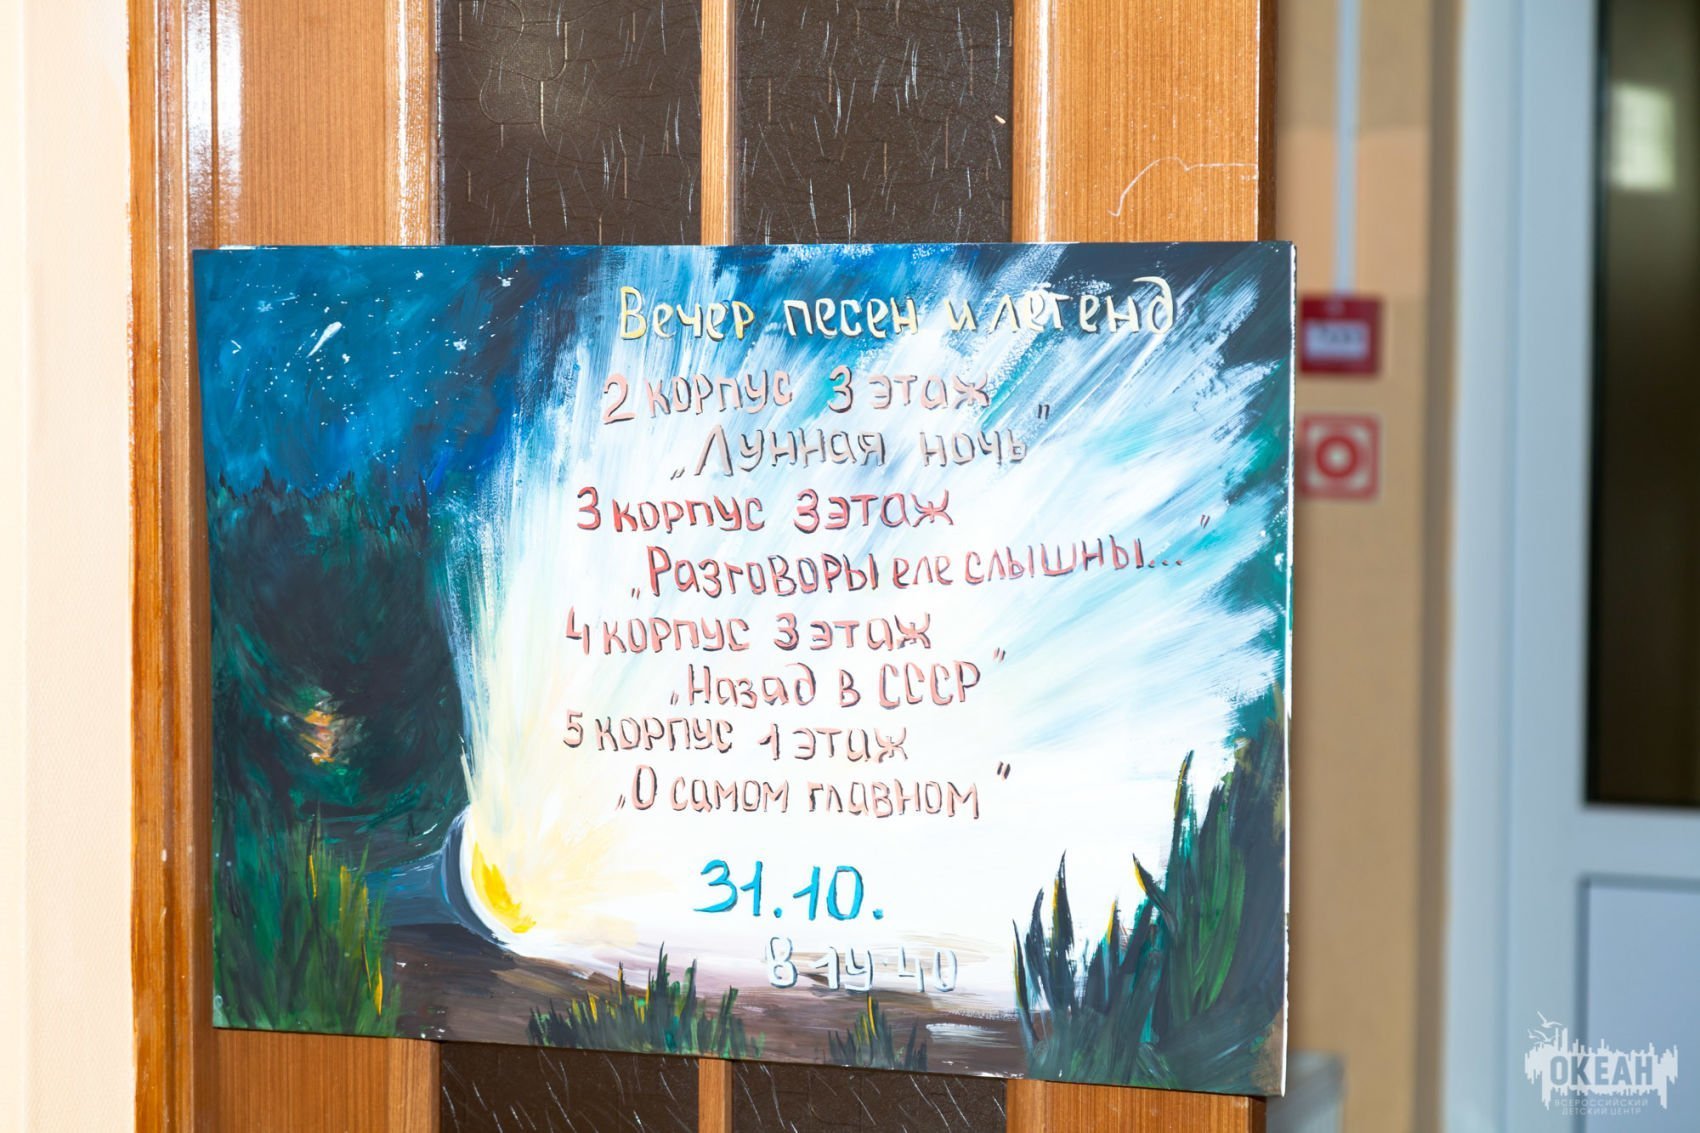 Вечер песен и легенд
2 корпус 3 этаж
„Лунная ночь"
3 корпус 3 этаж
„Разговоры еле слышны..."
4 корпус 3 этаж
„Назад в СССР"
5 корпус 1 этаж
„О самом главном"
31.10.
В 19:40
ОКЕАН
ВСЕРОССИЙСКИЙ
ДЕТСКИЙ ЦЕНТР